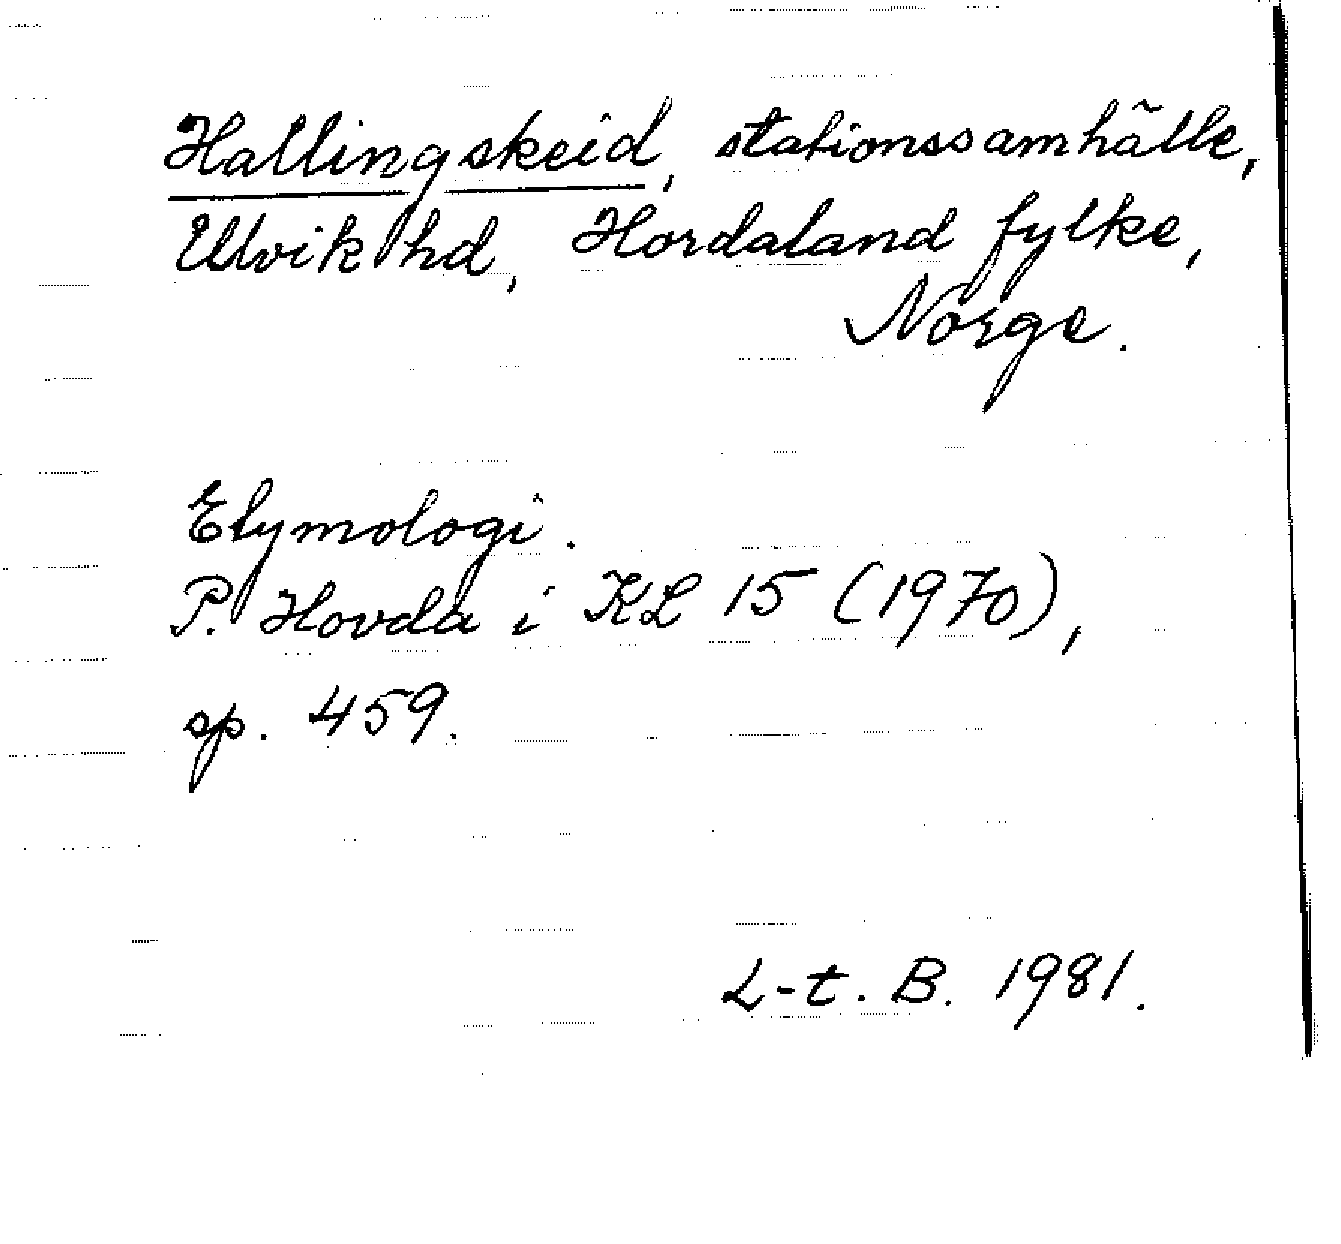 Hallingskeid, stationssamhälle,
Ulvik hd, Hordaland fylke,
Norge.
Etymologi.
P. Hovda i KL 15 (1970),
sp. 459.
L-t. B. 1981.